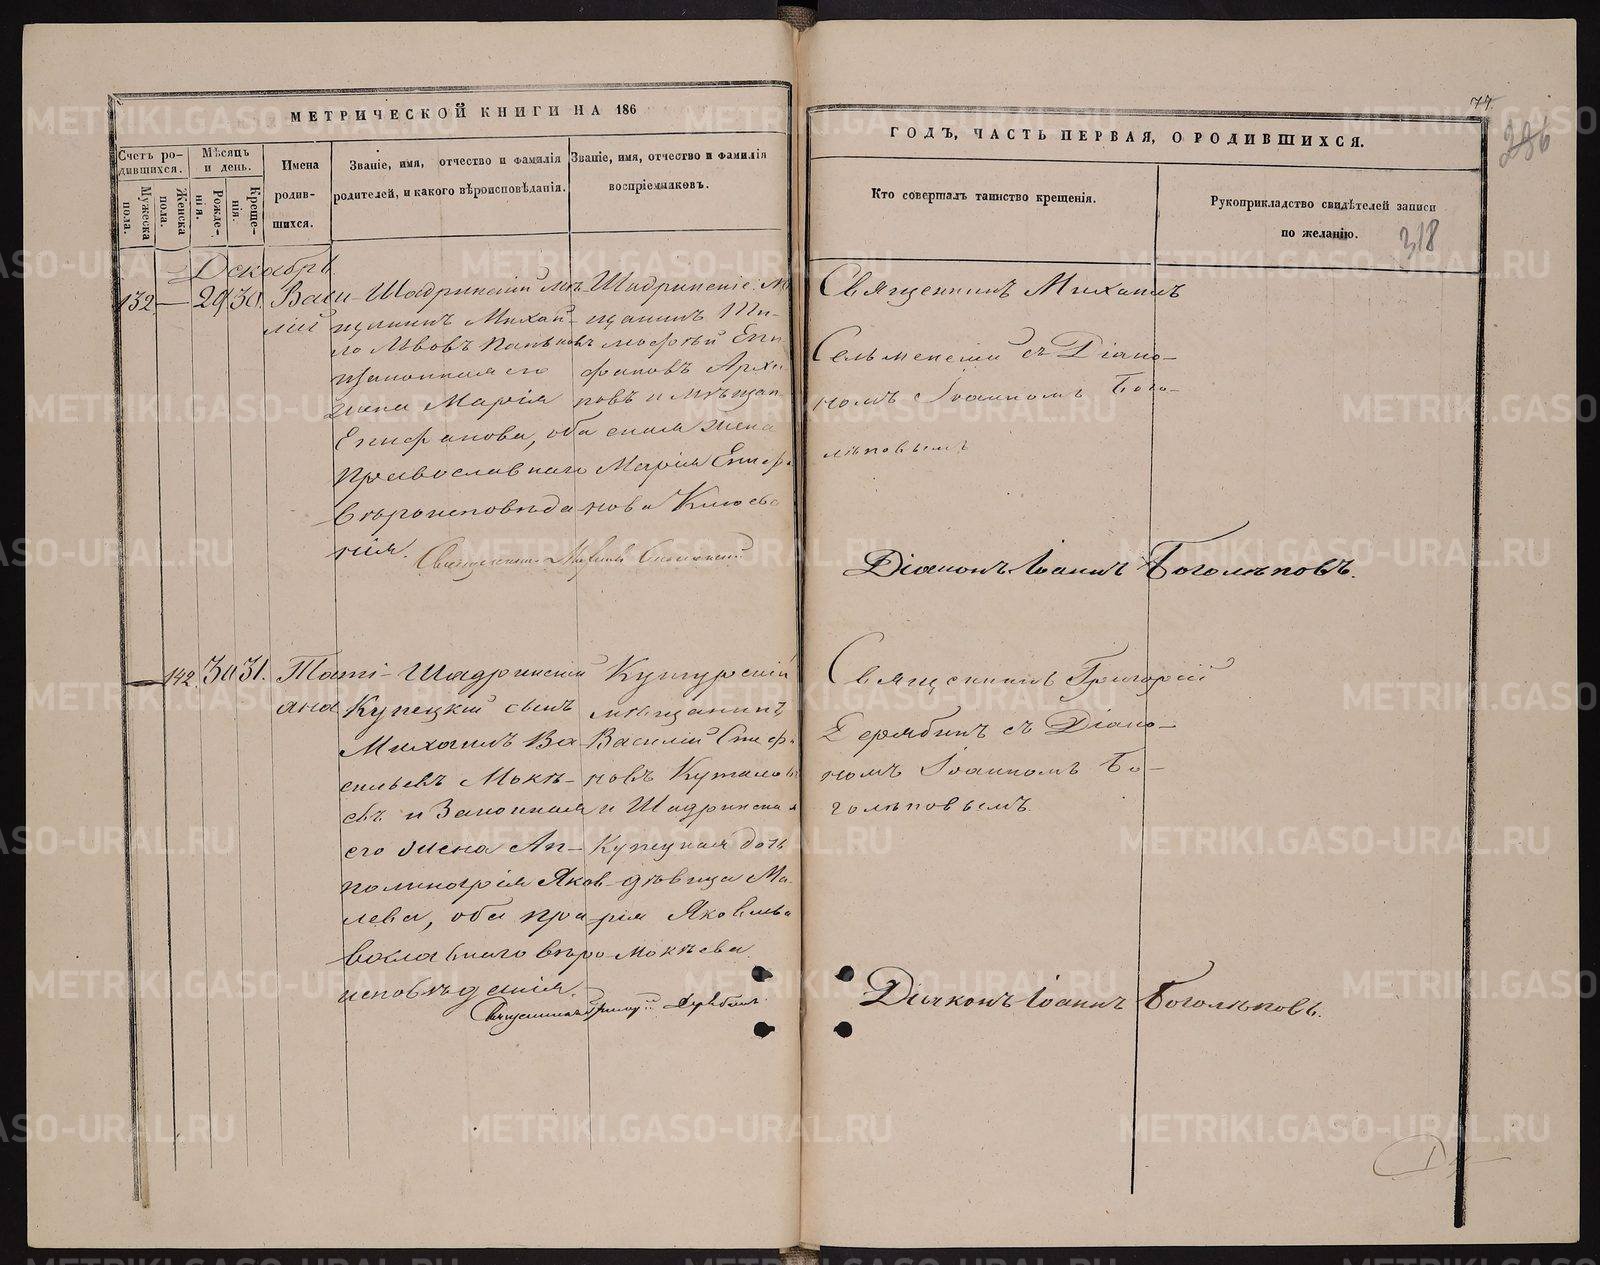 МЕТРИЧЕСКОЙ КНИГИ НА 186
Счетъ ро-
дившихся.
Мужеска
пола.
Женска
пола.
Мѣсяцъ
и день.
Рожде-
нія.
Креще-
нія.
Имена
родив-
шихся.
Званіе, имя, отчество и фамилія
родителей, и какого вѣроисповѣданія.
Званіе, имя, отчество и фамилія
воспріемниковъ.
Декабрь
132. — 29 30.
Васи-
лій
Шадринскій мѣ-
щанинъ Михаи-
ло Львовъ
законная его
жена Марія
Епифанова, оба
Православнаго
вѣроисповѣда-
нія.
Шадринскіе: мѣ
щанинъ Ти-
мофей Епи
фановъ Архи
повъ и мѣщан
ская жена
Марія Епиф
нова Клюева
Священникъ Михаилъ
— 142. 30 31.
Тати-
ана
Шадринскій
Купецкій сынъ
Михаилъ Ва
сильевъ Мокѣ-
евъ и Законная
его жена Ап-
полинарія Яков-
лева, оба пра
вославнаго вѣро
исповѣданія.
Кунгурскій
мѣщанинъ
Василій Стеф
новъ
и Шадринская
Купецкая дочь
дѣвица Ма
рія Яковлева
Мокѣева.
Священникъ
ГОДЪ, ЧАСТЬ ПЕРВАЯ, О РОДИВШИХСЯ.
77.
286
318
Кто совершалъ таинство крещенія.
Рукоприкладство свидѣтелей записи
по желанію.
Священникъ Михаилъ
съ Діако-
номъ Іоанномъ Бого-
лѣповымъ
Діаконъ Іоаннъ Боголѣповъ.
Священникъ Григорій
съ Діако-
номъ Іоанномъ Бо-
голѣповымъ.
Діаконъ Іоаннъ Боголѣповъ.
METRIKI.GASO-URAL.RU